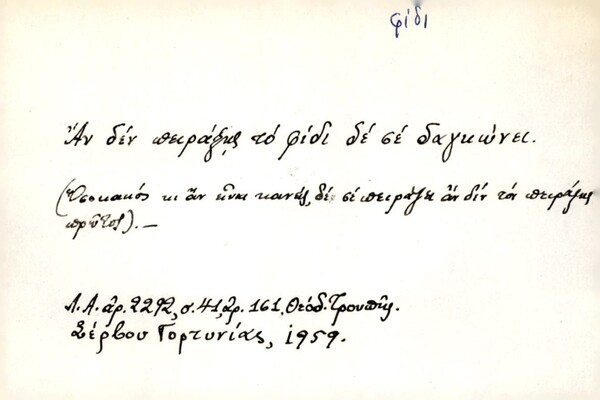 φίδι
Ἄν δέν πειράξῃς τό φίδι δέ σέ δαγκώνει.
(Ὅσο κακός κι ἄν εἶναι κανείς, δέ σέ πειράζει ἄν δέν τόν πειράξῃς
πρῶτος). —
Λ.Α. ἀρ. 2292, σ. 41, ἀρ. 161, Θεόδ. Τρουπῆς.
Σέρβου Γορτυνίας, 1959.